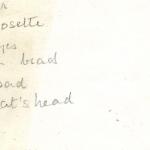 osette
yes
bead
oad
at's head